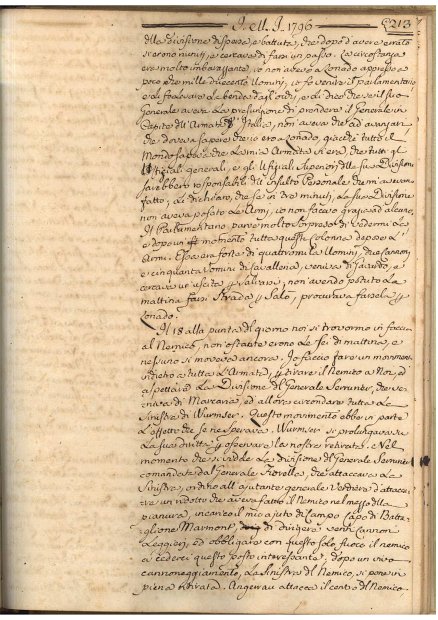 J. ell. J. 1796 213
dlla divisione dispersa, e battuta, che dopo d'avere errato
si erono riuniti, e cercava di farsi un passo. La circostanza
era molto imbarazzante, io non avevo a Lonado appresso a
poco che mille duecento Uomini; io fò venire il parlamentario
e fò levare le bende dagl'occhi, e li dico che se il suo
Generale aveva la presunzione di prendere il Generale in
Capite dll'Armata d'Italia, non aveva che ad avanzare
che doveva sapere che io ero a Lonado, giacchè tutto il
Mondo sa che la mia Armata vi era, che tutti gl
Ufficiali generali, e gl'Ufficiali Superiori dlla sua Divisione
sarebbero responsabili dll'insulto Personale che m'avevan
fatto; Le dichiaro, che se in tre minuti, la sua Divisione
non aveva posato le Armi, io non faceva grazia ad alcuno.
Il Parlamentario parve molto sorpreso di vedermi là
e dopo un momento tutta questa colonna depose l'
Armi. Essa era forte di quattromila Uomini, due cannoni
e cinquanta Uomini di Cavalleria, veniva di Gavardo, e
cercava un'uscita p salvarsi; non avendo potuto la
mattina farsi Strada p Salò, procurava farsela p
Lonado.
Il 18 alla punta di giorno noi si trovammo in faccia
al Nemico, non ostante erono le sei di mattina, e
nessuno si moveva ancora. Io faccio fare un movimento
indietro a tutta l'Armata, p tirare il Nemico a Noi, d
aspettare la Divisione del Generale Serrurier, che ve-
niva di Marcaria, ed allora circondare tutta la
Sinistra di Wurmser. Questo movimento ebbe in parte
l'effetto che se ne sperava. Wurmser si prolungava su
la sua dritta p osservare la nostra ritirata. Nel
momento che si vidde la divisione del Generale Serrurier
comandata dal Generale Fiorella, che attaccava la
Sinistra, ordino all'ajutante generale Verdiere d'attacca-
re un ridotto che aveva fatto il Nemico nel mezzo dlla
pianura, incarico il mio ajuto di Campo Capo di Batta-
glione Marmont, di dirigere venti cannon
Leggieri, ed obbligato con questo solo fuoco il nemico
a cederci questo posto interessante. dopo un vivo
cannoneggiamento, la Sinistra dl Nemico, si pone in
piena ritirata. Angerau attacca il centro dl Nemico